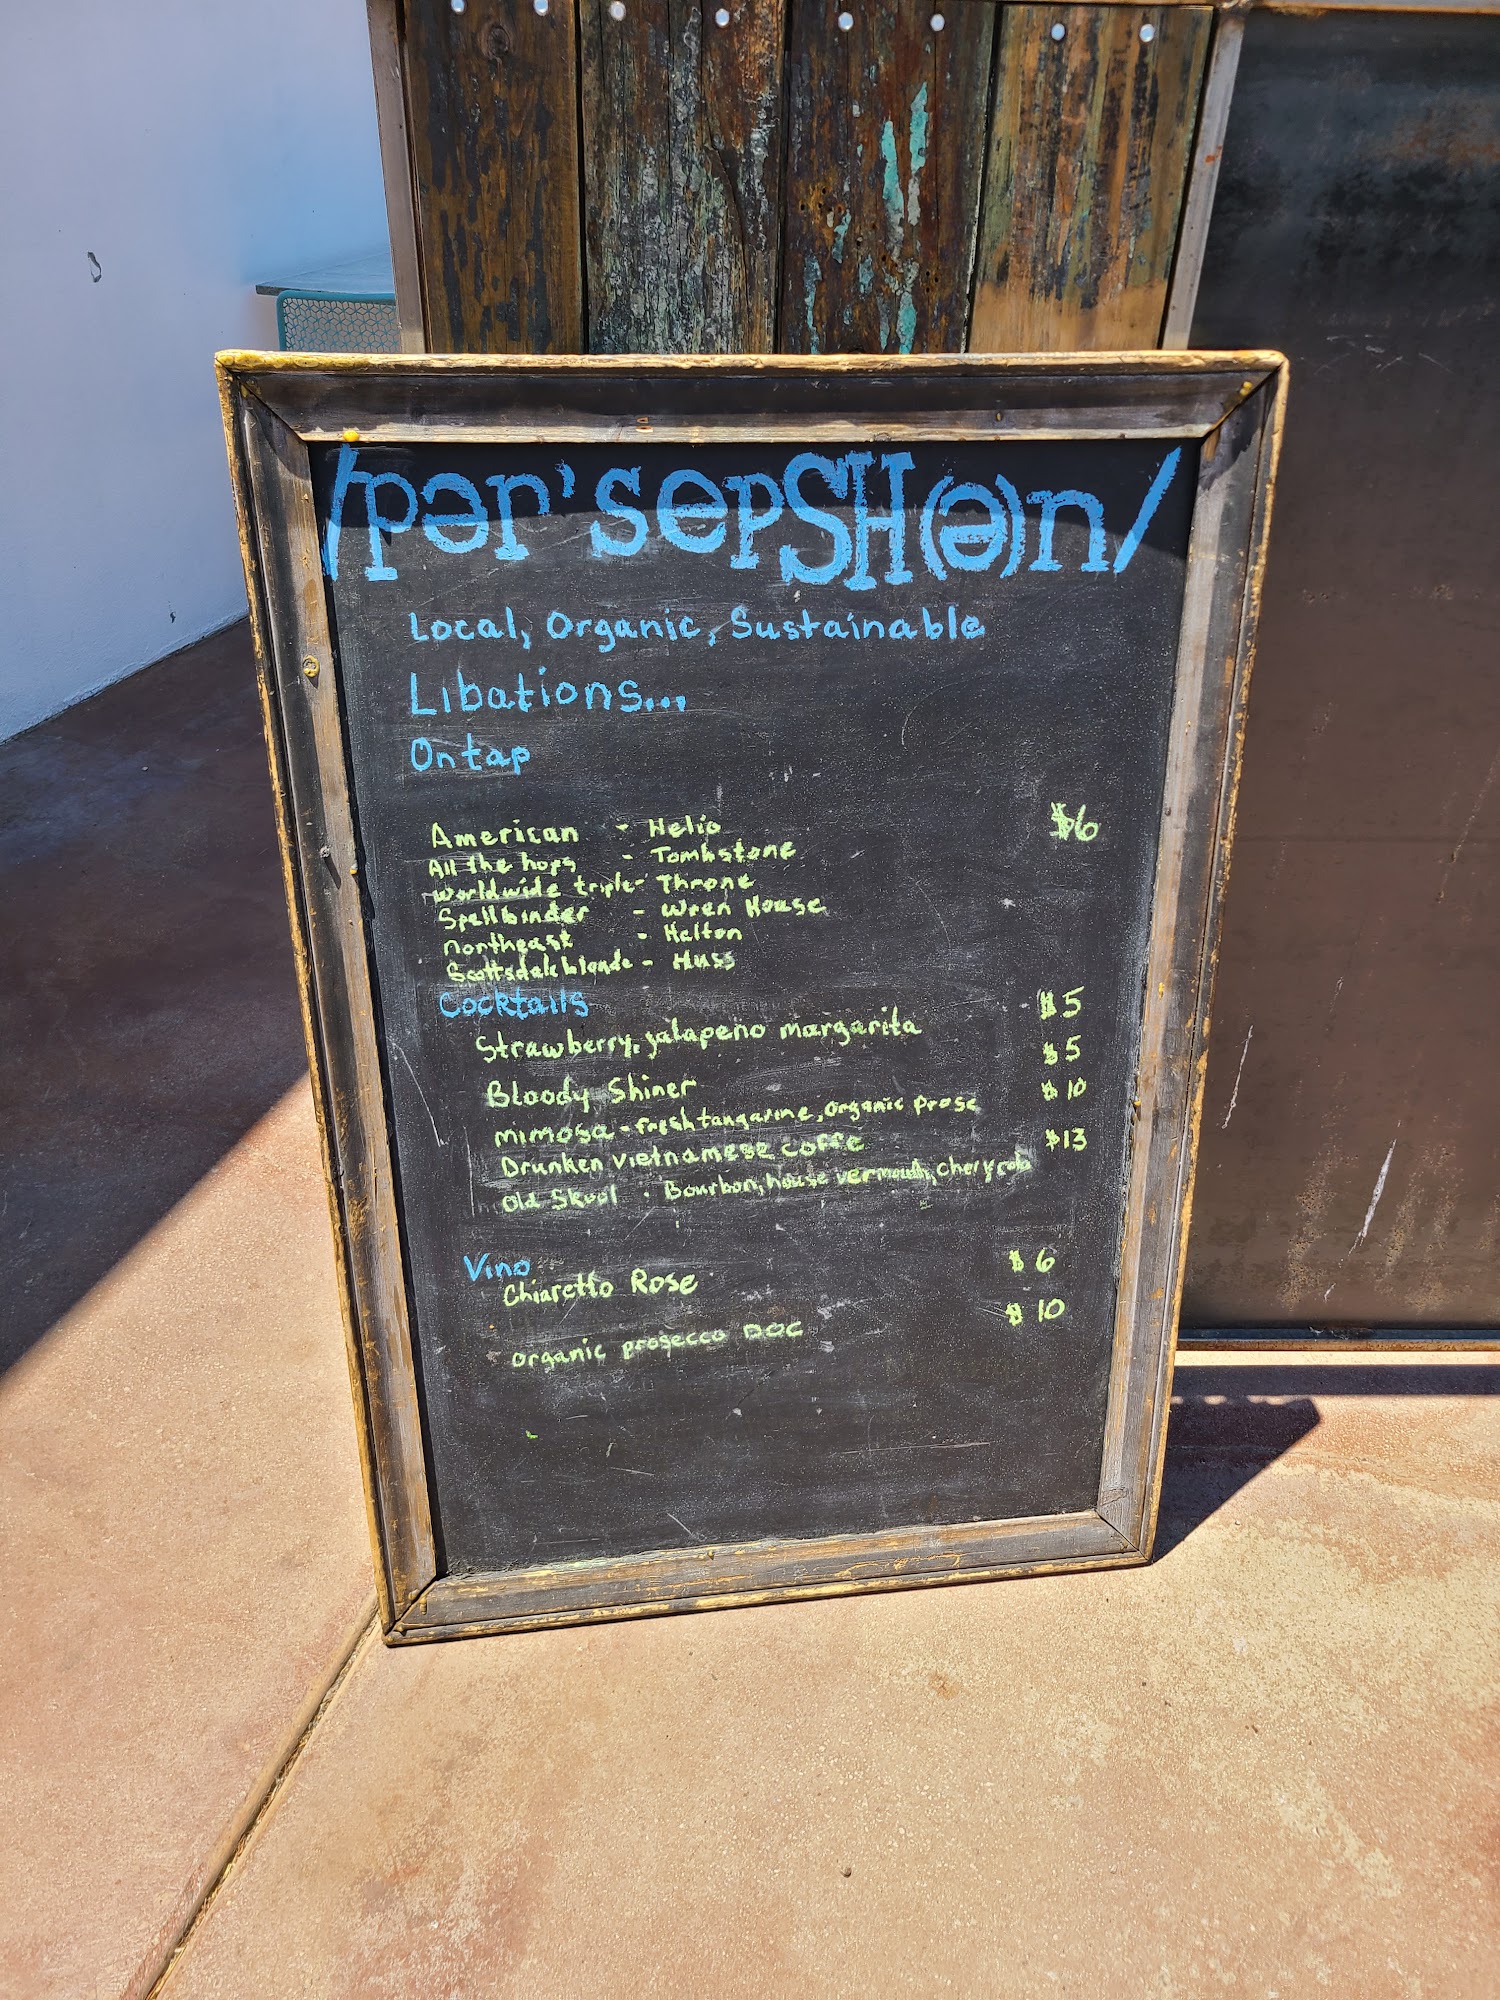 /pər'sepSH(ə)n/
Local, Organic, Sustainable
Libations...
On tap
American - Helio $6
All the hops - Tombstone
Worldwide triple - Throne
Spellbinder - Wren House
Northeast - Helton
Scottsdale blonde - Huss
Cocktails $5
Strawberry, jalapeno margarita
$5
Bloody Shiner $10
mimosa - fresh tangarine, organic prosc
Drunken vietnamese coffe $13
Old Skool - Bourbon, house vermouth, chery
Vino $6
Chiaretto Rose
$10
organic prosecco DOC